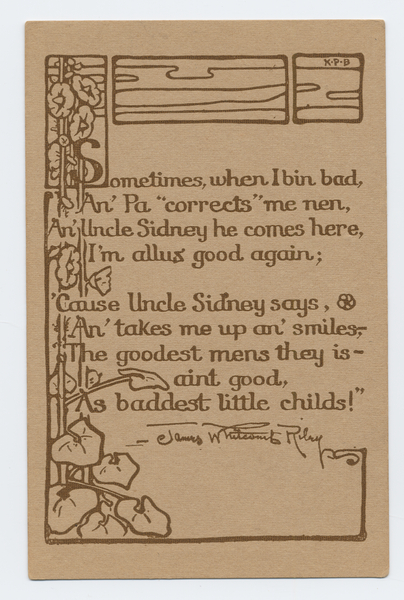 K·P·B
Sometimes, when I bin bad,
An' Pa "corrects" me nen,
An' Uncle Sidney he comes here,
I'm allus good again;
'Cause Uncle Sidney says,
An' takes me up an' smiles,-
The goodest mens they is-
aint good,
As baddest little childs!"
- James Whitcomb Riley